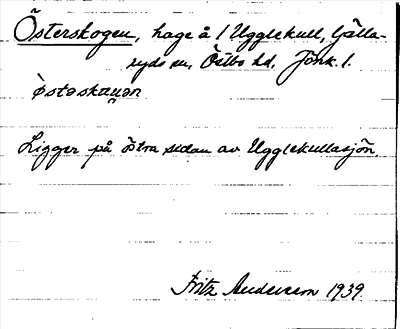 Österskogen, hage å 1 Ugglekull, Gälla-
ryds sn, Östbo hd, Jönk. l.
Ligger på östra sidan av Ugglekullasjön.
Fritz Andersson 1939